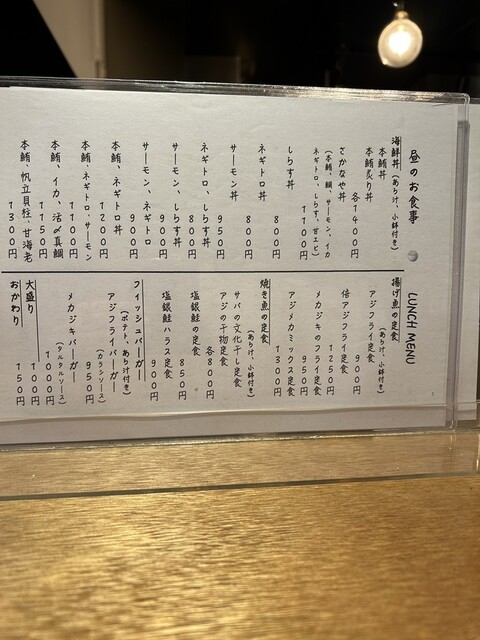 昼のお食事 LUNCH MENU
海鮮丼(あら汁、小鉢付き)
本鮪丼
本鮪炙り丼
各1400円
さかなや丼
(本鮪、鯛、サーモン、イカ
ネギトロ、しらす、甘エビ)
1100円
しらす丼
800円
ネギトロ丼
800円
サーモン丼
950円
ネギトロ、しらす丼
800円
サーモン、しらす丼
900円
サーモン、ネギトロ
900円
本鮪、ネギトロ丼
1200円
本鮪、ネギトロ、サーモン
1100円
本鮪、イカ、活〆真鯛
1150円
本鮪、帆立貝柱、甘海老
1300円
揚げ魚の定食
(あら汁、小鉢付き)
アジフライ定食
900円
倍アジフライ定食
1250円
メカジキのフライ定食
950円
アジメカミックス定食
1300円
焼き魚の定食
(あら汁、小鉢付き)
サバの文化干し定食
アジの干物定食
各800円
塩銀鮭の定食
850円
塩銀鮭ハラス定食
900円
フィッシュバーガー
(ポテト、あら汁付き)
アジフライバーガー
(カラシソース)
950円
メカジキバーガー
(タルタルソース)
1000円
大盛り
100円
おかわり
150円